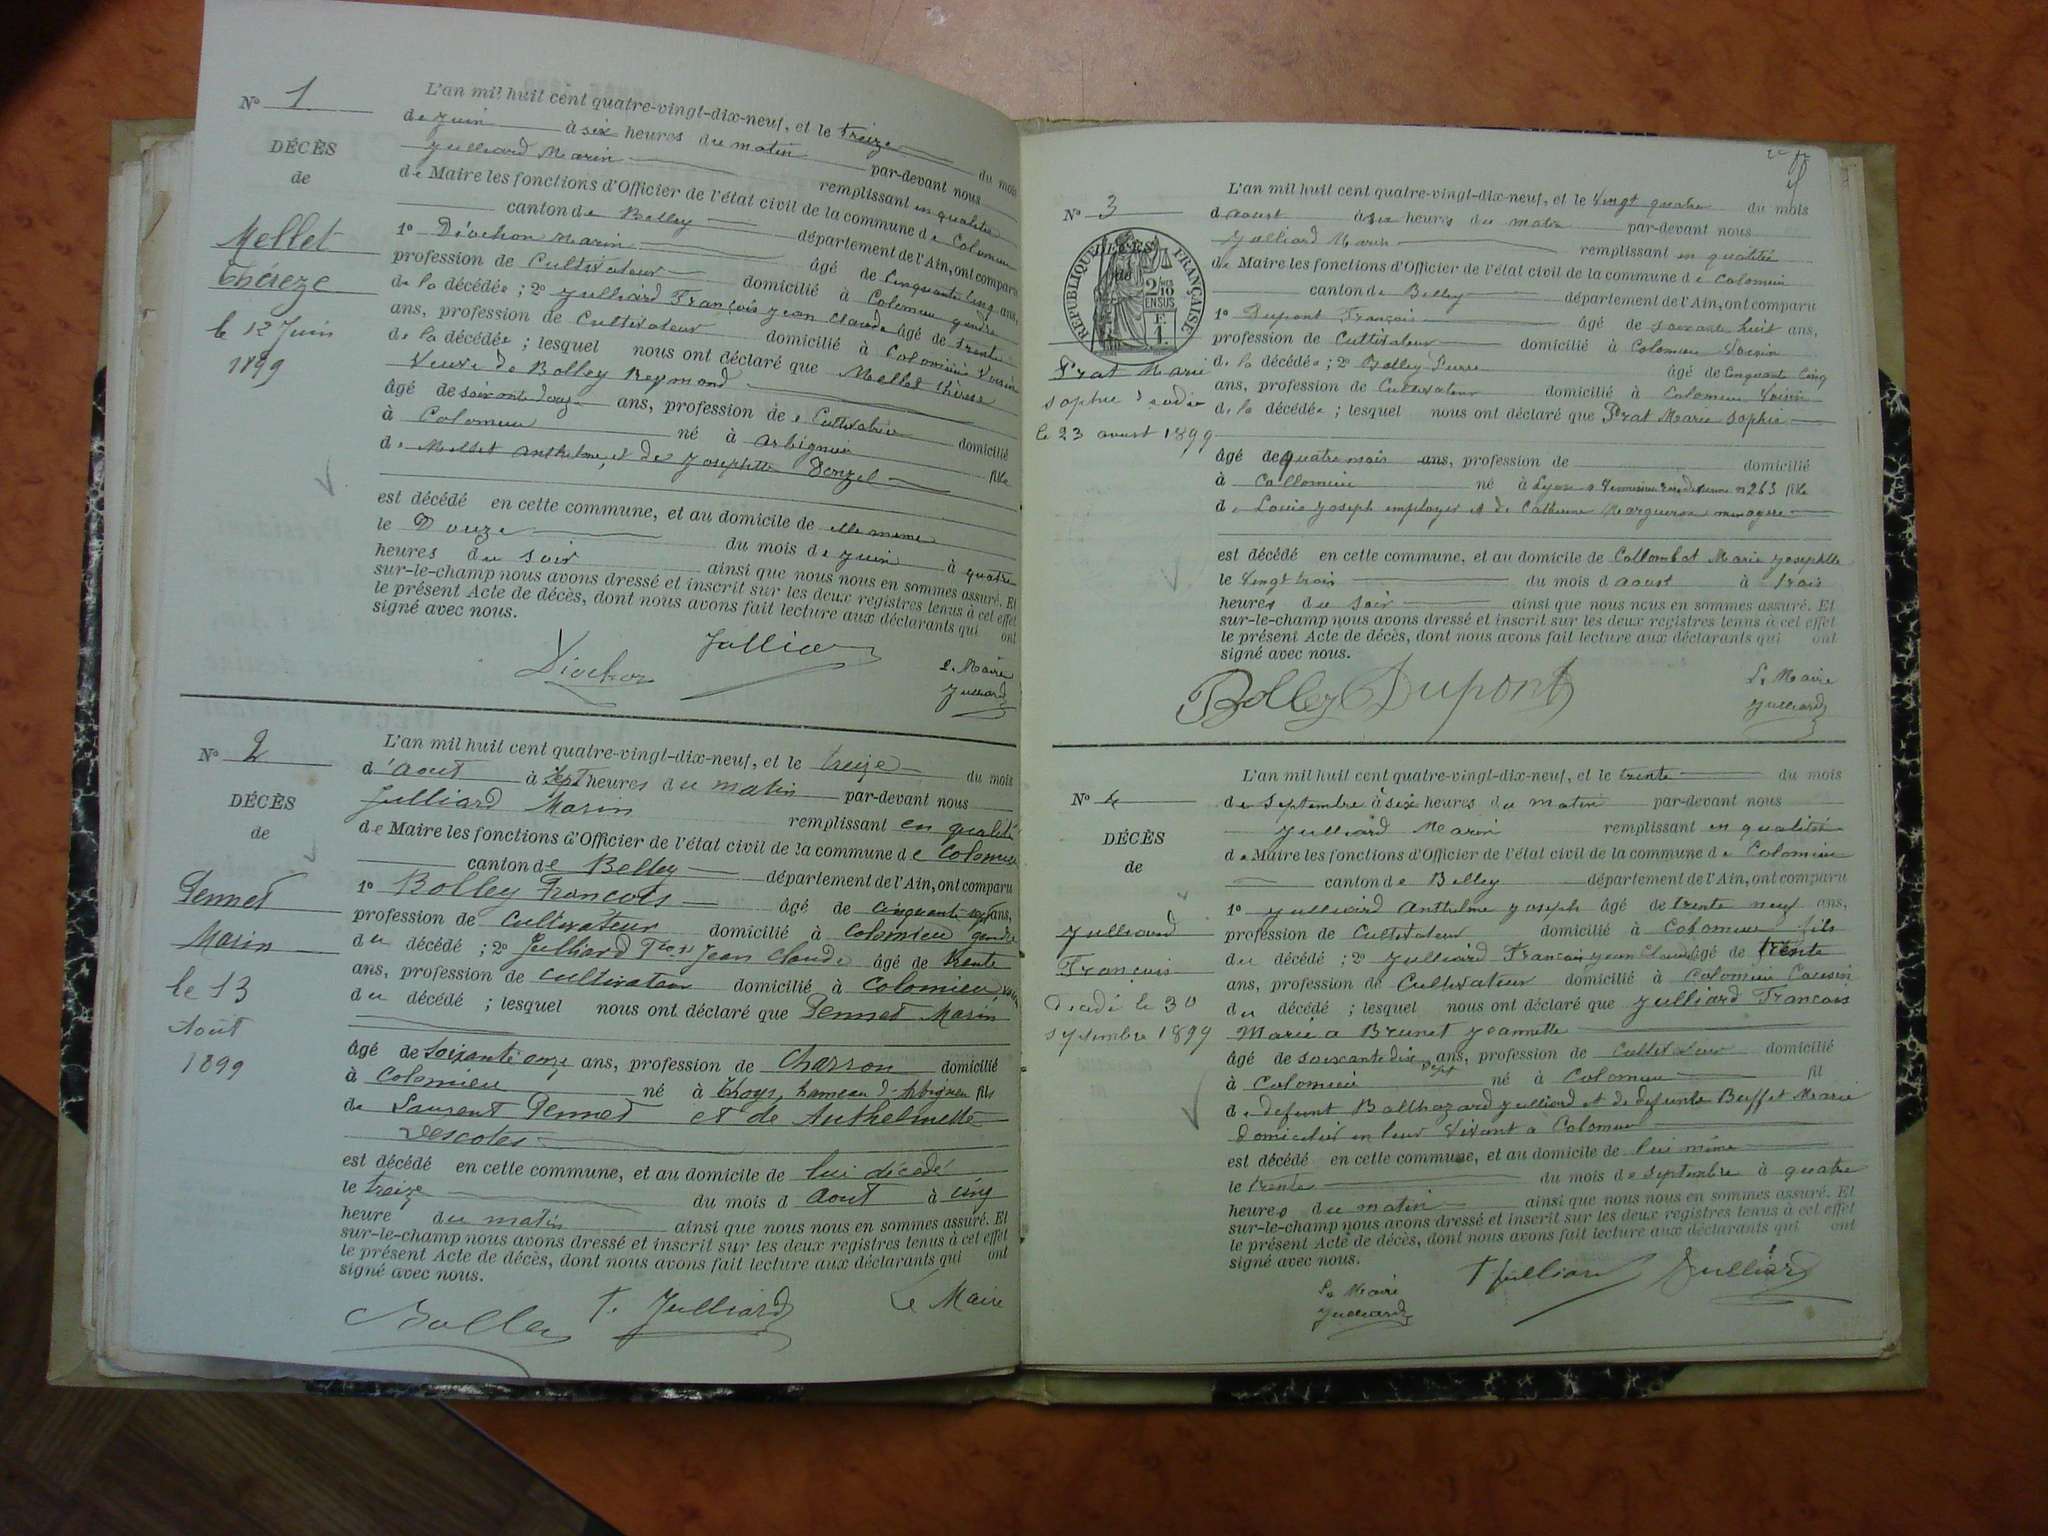 N° 1
DÉCÈS
de
Mellet
Théreze
le 12 Juin
1899
L'an mil huit cent quatre-vingt-dix-neuf, et le treize du mois
de Juin à six heures du matin par-devant nous
Julliard Marin remplissant en qualité
de Maire les fonctions d'Officier de l'état civil de la commune de Colomieu
canton de Belley département de l'Ain, ont comparu
1° Diochon Marin âgé de Cinquante cinq ans,
profession de Cultivateur domicilié à Colomieu gendre
de la décédée ; 2° Julliard François Jean Claude âgé de trente
ans, profession de Cultivateur domicilié à Colomieu Voisin
de la décédée ; lesquel nous ont déclaré que Mellet thérèse
Veuve de Bolley Reymond
âgé de soixante douze ans, profession de Cultivatrice domicilié
à Colomieu né à Arbignieu fille
de Mellet Anthelme et de Josephtte
est décédé en cette commune, et au domicile de elle meme
le Douze du mois de Juin à quatre
heures du soir ainsi que nous nous en sommes assuré. Et
sur-le-champ nous avons dressé et inscrit sur les deux registres tenus à cet effet
le présent Acte de décès, dont nous avons fait lecture aux déclarants qui ont
signé avec nous.
Diochon Julliard
le Maire
Julliard
N° 2
DÉCÈS
de
Pennet
Marin
le 13
Août
1899
L'an mil huit cent quatre-vingt-dix-neuf, et le treize du mois
d'Aout à Sept heures du matin par-devant nous
Julliard Marin remplissant en qualité
de Maire les fonctions d'Officier de l'état civil de la commune de Colomieu
canton de Belley département de l'Ain, ont comparu
1° Bolley François âgé de cinquante sept ans,
profession de Cultivateur domicilié à Colomieu gendre
du décédé ; 2° Julliard Fçois Jean Claude âgé de trente
ans, profession de cultivateur domicilié à Colomieu voisin
du décédé ; lesquel nous ont déclaré que Pennet Marin
âgé de Soixante onze ans, profession de Charron domicilié
à Colomieu né à thoys, hameau d'Arbignieu fils
de Laurent Pennet et de Anthelmette
Descotes
est décédé en cette commune, et au domicile de lui décédé
le treize du mois d Aout à cinq
heure du matin ainsi que nous nous en sommes assuré. Et
sur-le-champ nous avons dressé et inscrit sur les deux registres tenus à cet effet
le présent Acte de décès, dont nous avons fait lecture aux déclarants qui ont
signé avec nous.
Bolley F. Julliard Le Maire
N° 3
RÉPUBLIQUE FRANÇAISE
DÉCÈS
de
2/10 EN SUS
F. 1.
Prat Marie
Sophie
le 23 aoust 1899
L'an mil huit cent quatre-vingt-dix-neuf, et le Vingt quatre du mois
d aoust à six heures du matin par-devant nous
Julliard Marin remplissant en qualité
de Maire les fonctions d'Officier de l'état civil de la commune de Colomieu
canton de Belley département de l'Ain, ont comparu
1° Dupont François âgé de soixante huit ans,
profession de Cultivateur domicilié à Colomieu Voisin
de la décédée ; 2° Bolley Pierre âgé de Cinquante Cinq
ans, profession de Cultivateur domicilié à Colomieu Voisin
de la décédée ; lesquel nous ont déclaré que Prat Marie Sophie
âgé de quatre mois ans, profession de domicilié
à Collomieu né à Lyon n 263 fille
de Louis Joseph employer et de Catherine Margueron menagere
est décédé en cette commune, et au domicile de Collombet Marie Josephtte
le Vingt trois du mois d aoust à trois
heures du soir ainsi que nous nous en sommes assuré. Et
sur-le-champ nous avons dressé et inscrit sur les deux registres tenus à cet effet
le présent Acte de décès, dont nous avons fait lecture aux déclarants qui ont
signé avec nous.
Bolley Dupont
Le Maire
Julliard
N° 4
DÉCÈS
de
Julliard
François
Décédé le 30
septembre 1899
L'an mil huit cent quatre-vingt-dix-neuf, et le trente du mois
de Septembre à six heures du matin par-devant nous
Julliard Marin remplissant en qualité
de Maire les fonctions d'Officier de l'état civil de la commune de Colomieu
canton de Belley département de l'Ain, ont comparu
1° Julliard Anthelme Joseph âgé de trente neuf ans,
profession de Cultivateur domicilié à Colomieu fils
du décédé ; 2° Julliard François Jean Claude âgé de trente
ans, profession de Cultivateur domicilié à Colomieu Cousin
du décédé ; lesquel nous ont déclaré que Julliard François
Marié a Brunet Jeannette
âgé de soixante dix sept ans, profession de Cultivateur domicilié
à Colomieu né à Colomieu fil
de defunt Balthazard Julliard et de defunte Buffet Marie
Domicilies en leur Vivant a Colomieu
est décédé en cette commune, et au domicile de lui même
le trente du mois de Septembre à quatre
heures du matin ainsi que nous nous en sommes assuré. Et
sur-le-champ nous avons dressé et inscrit sur les deux registres tenus à cet effet
le présent Acte de décès, dont nous avons fait lecture aux déclarants qui ont
signé avec nous.
Le Maire
Julliard
F Julliard Julliard